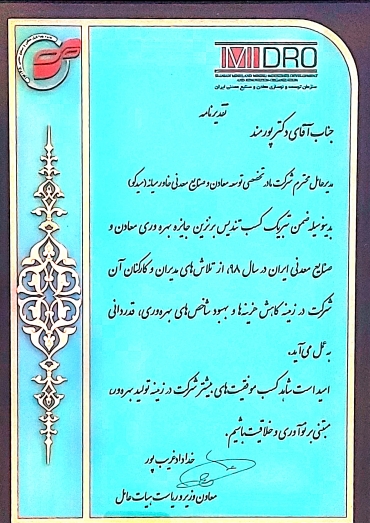 IMIDRO
IRANIAN MINES AND MINING INDUSTRIES DEVELOPMENT
AND RENOVATION ORGANIZATION
سازمان توسعه و نوسازی معادن و صنایع معدنی ایران
تقدیرنامه
جناب آقای دکتر پورمند
مدیرعامل محترم شرکت مادر تخصصی توسعه معادن و صنایع معدنی خاورمیانه (میدکو)
بدینوسیله ضمن تبریک کسب تندیس برنزین جایزه بهره وری معادن و
صنایع معدنی ایران در سال ۹۸، از تلاش های مدیران و کارکنان آن
شرکت در زمینه کاهش هزینه ها و بهبود شاخص های بهره وری، قدردانی
به عمل می آید.
امید است شاهد کسب موفقیت های بیشتر شرکت در زمینه تولید بهره ور،
مبتنی بر نوآوری و خلاقیت باشیم.
خداداد غریب پور
معاون وزیر و ریاست هیات عامل